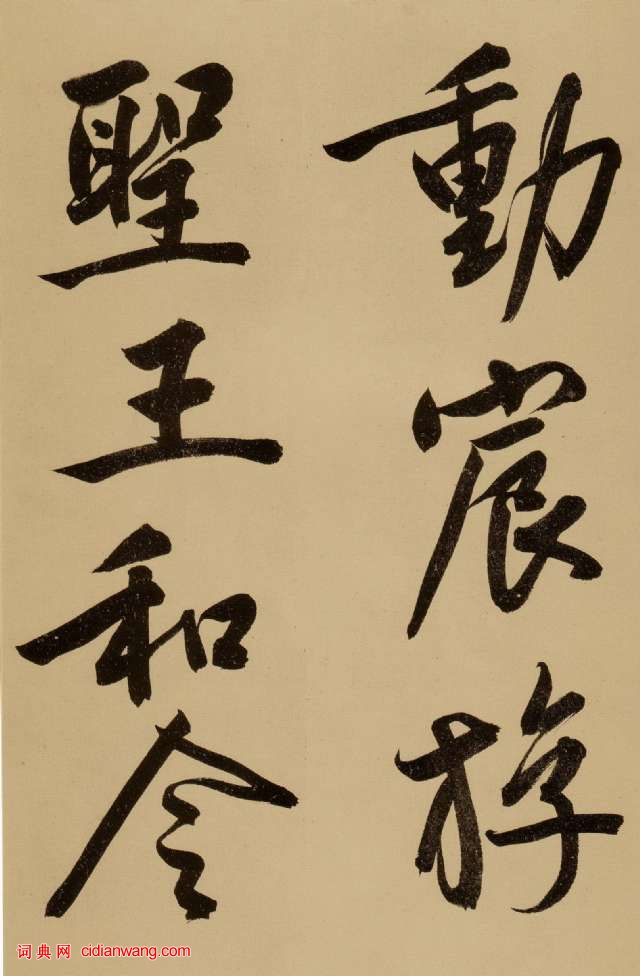 動宸游
聖王和令
词典网 cidianwang.com